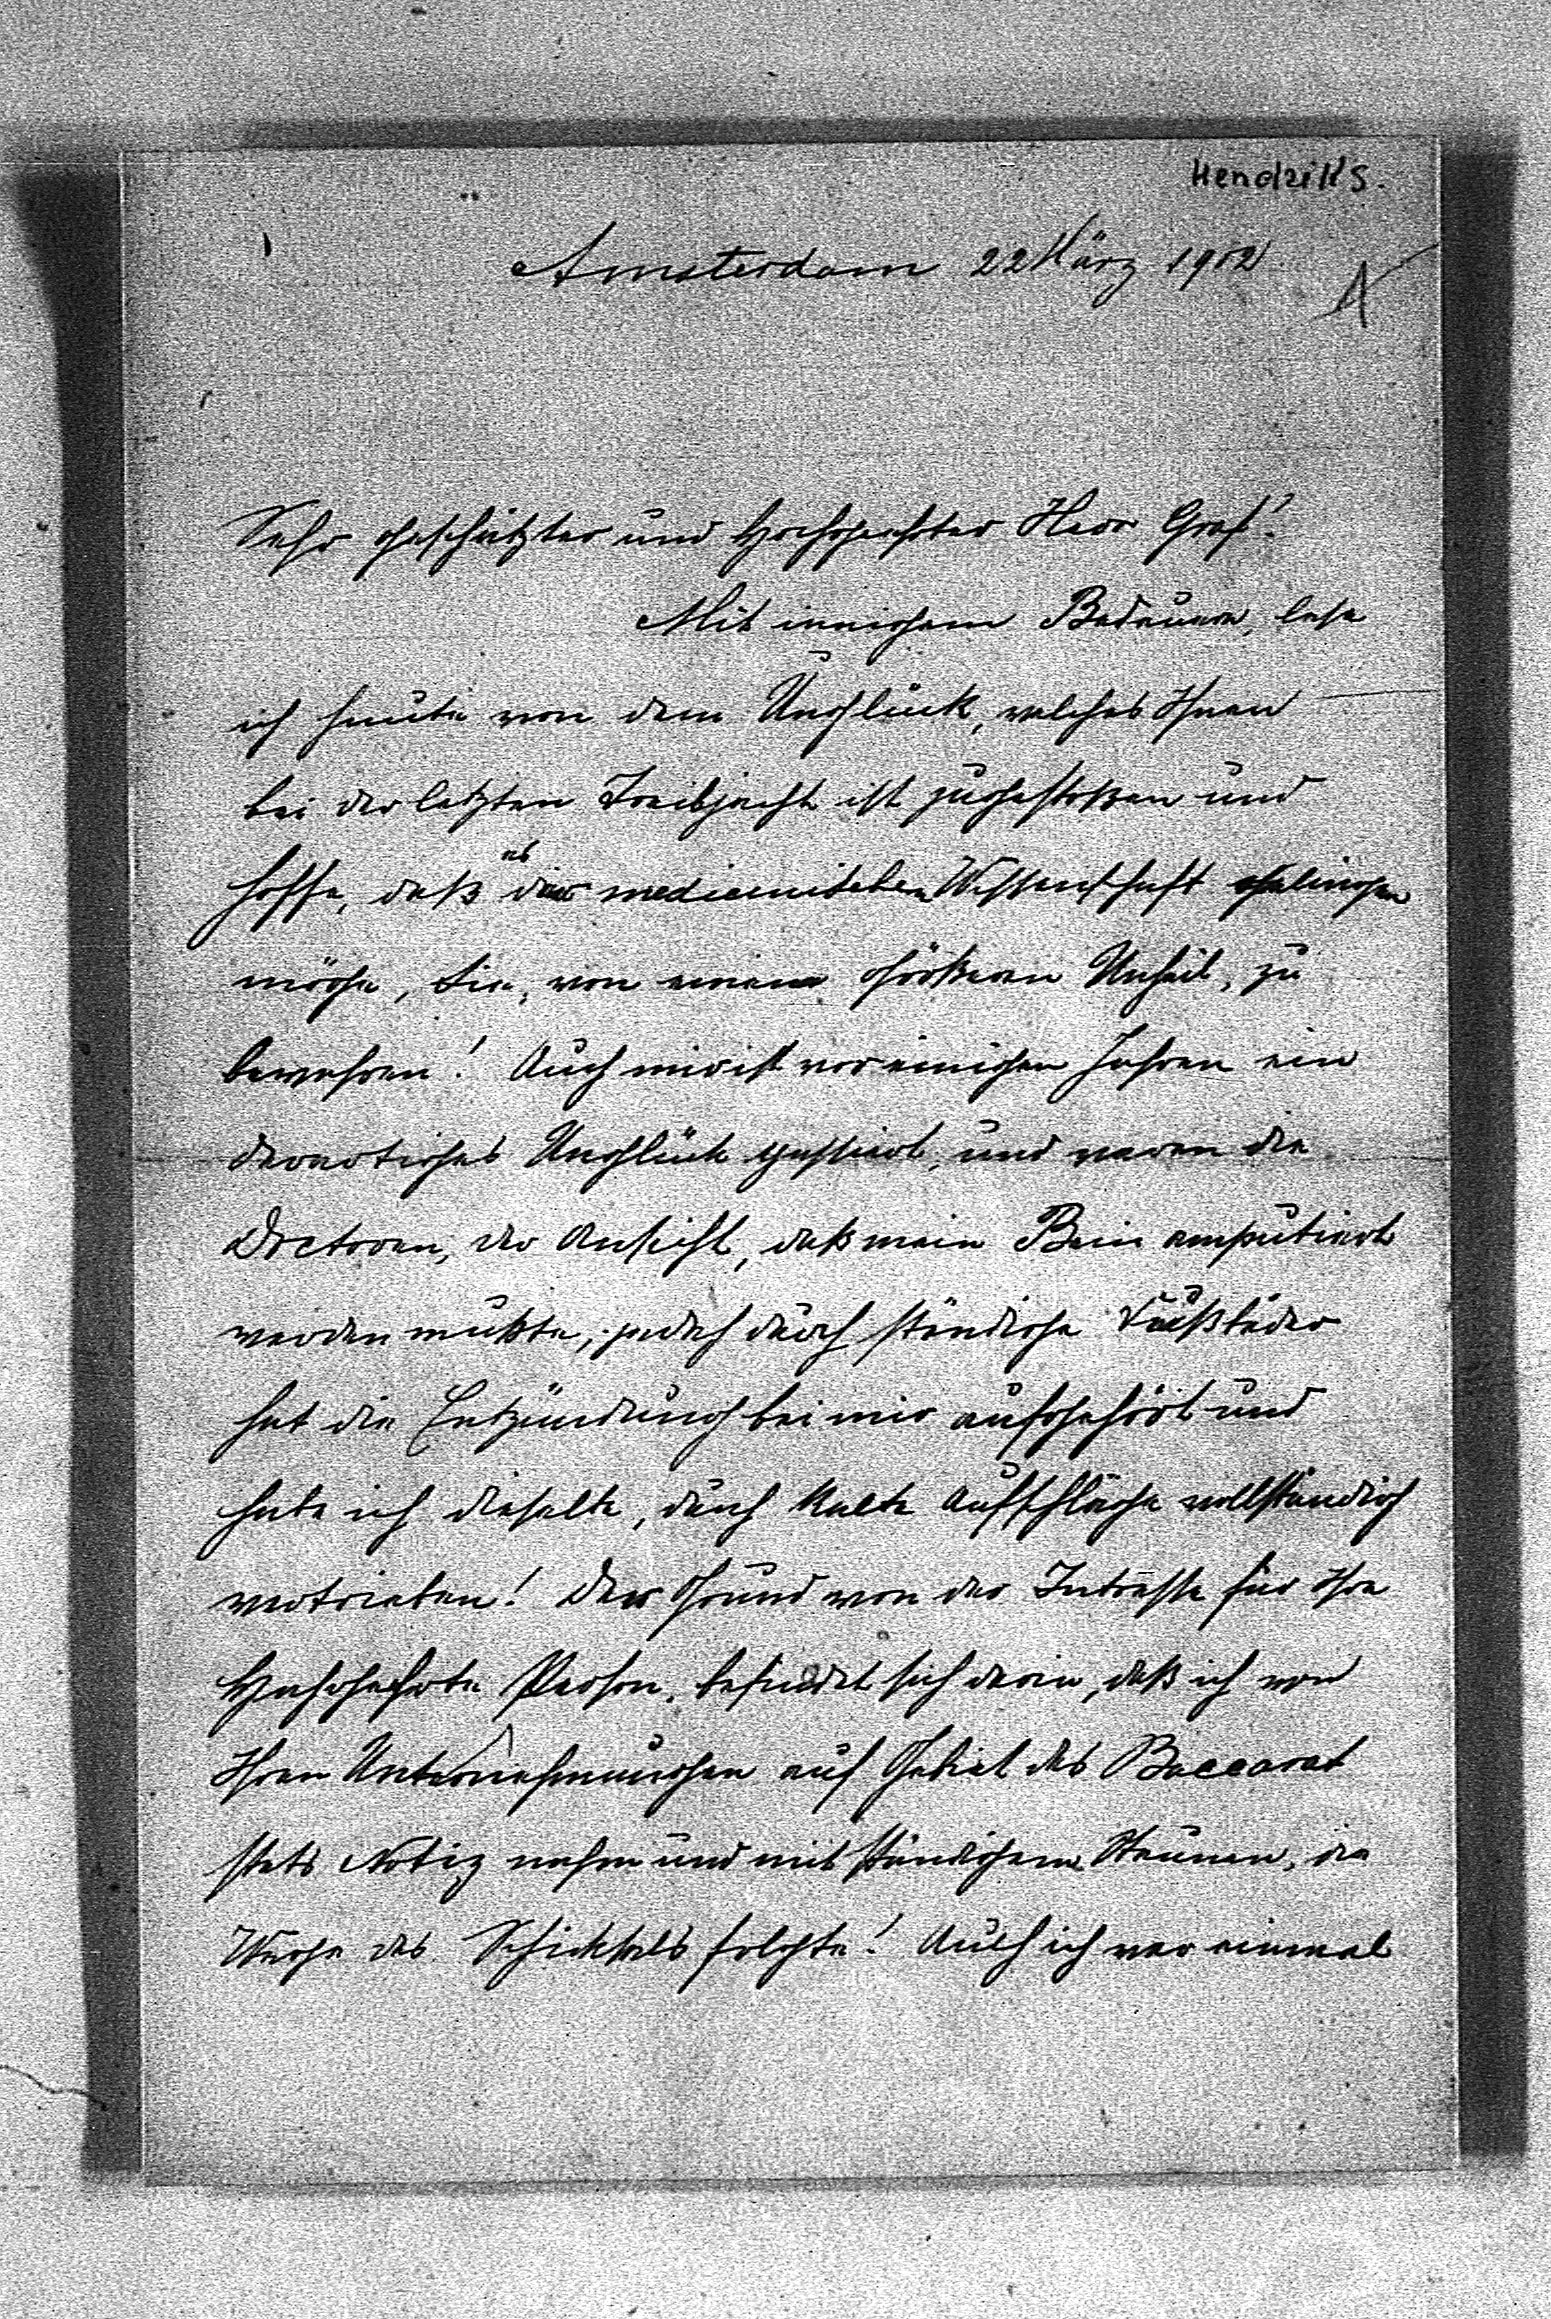 Hendriks.
Amsterdam 22 März 1902
Sehr geschätzter und Hochgeehrter Herr Graf!
Mit innigem Bedauern, lese
ich heute von dem Unglück, welches Ihnen
bei der letzten Treibjacht ist zugestoßen und
hoffe, daß es der medicinischen Wissenschaft gelingen
möge, Sie, von einem größeren Unheil, zu
bewahren! Auch mir ist vor einigen Jahren ein
derartiges Unglück passirt, und waren die
Doctoren, der Ansicht, daß mein Bein amputiert
werden müßte, jedoch durch ständige Fußbäder
hat die Entzündung bei mir aufgehört und
habe ich dieselbe, durch kalte Aufschläge vollständig
vertrieben! Der Grund von der Intresse für Ihre
Hochgeehrte Person, befindet sich darin, daß ich von
Ihren Unternehmungen auf Gebiet des Baccarat
stets Notiz nahm und mit ständigem Staunen, die
Wege des Schicksals folgte! Auch ich war einmal